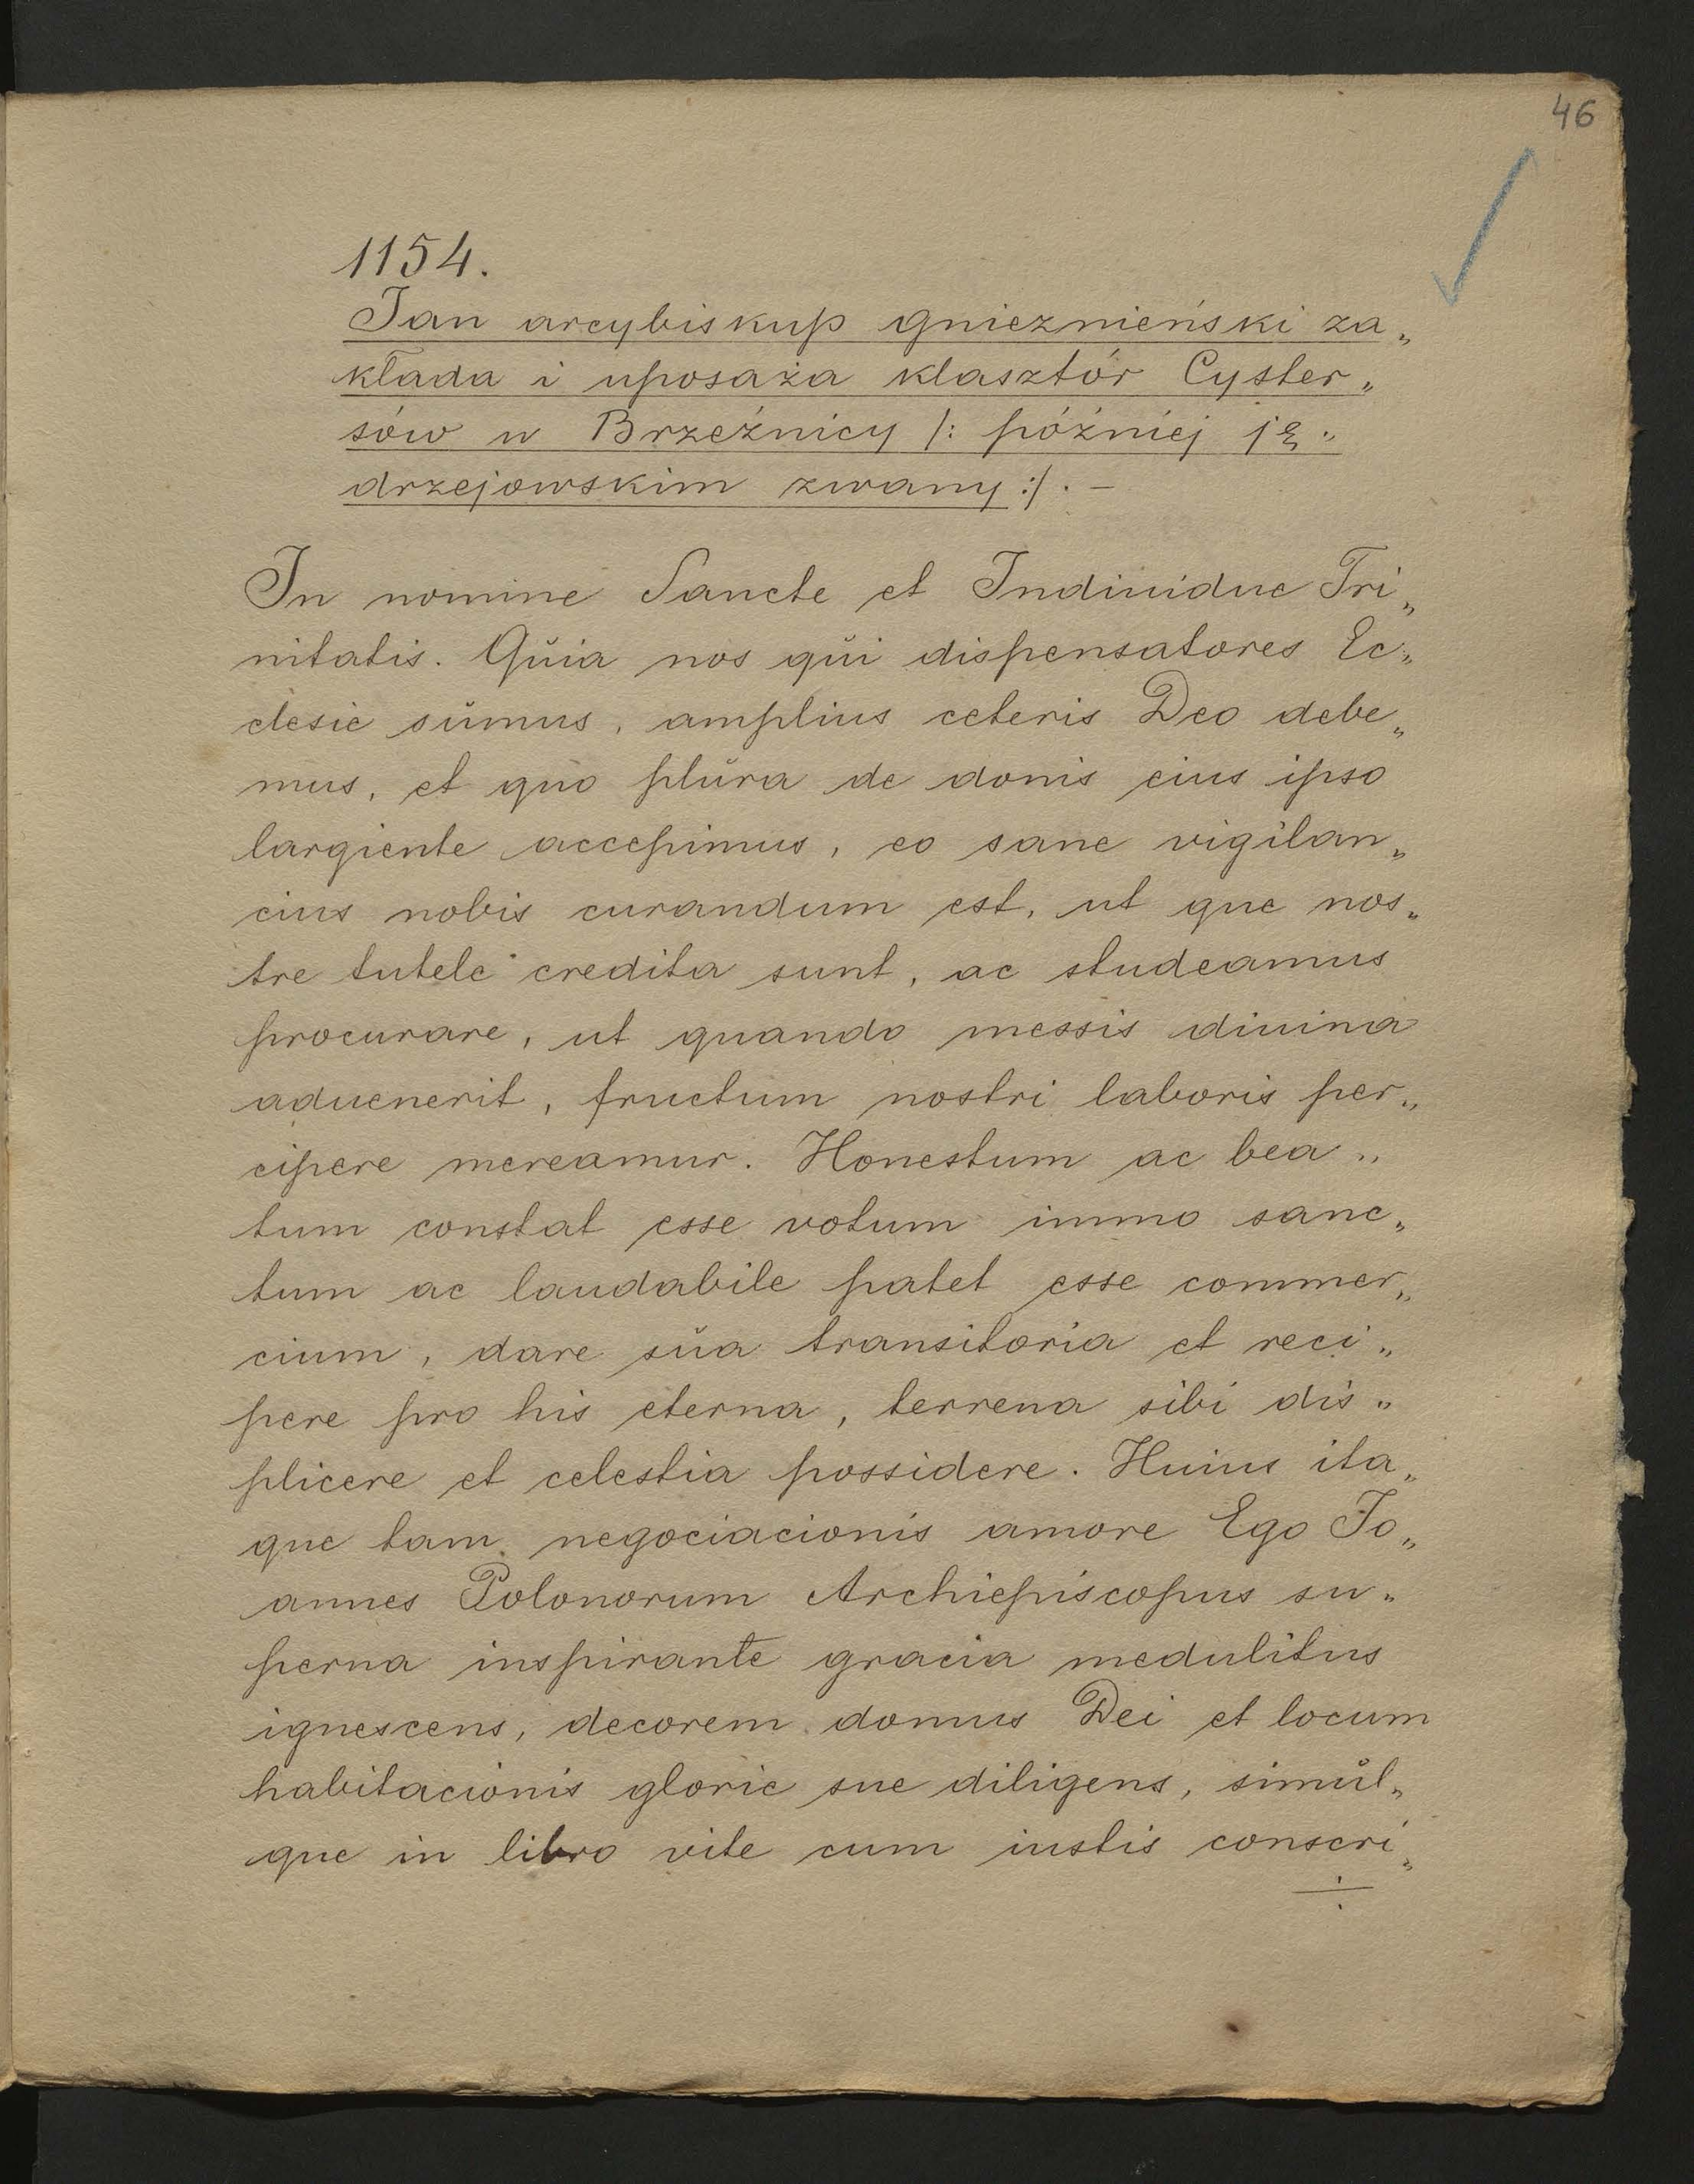 46
1154.
Jan arcybiskup gnieznieński za„
kłada i uposaża klasztór Cyster„
sów w Brzeźnicy /: późniéj ję„
drzejowskim zwany :/. —
In nomine Sancte et Indiuidue Tri„
nitatis. Qŭia nos qŭi dispensatores Ec„
clesie sŭmus, amplius ceteris Deo debe„
mus, et quo plŭra de donis eius ipso
largiente accepimus, eo sane vigilan„
cius nobis curandum est, ut que nos„
tre tutele credita sunt, ac studeamus
procurare, ut quando messis diuina
aduenerit, fructum nostri laboris per„
cipere mereamur. Honestum ac bea„
tum constat esse votum immo sanc„
tum ac laudabile patet esse commer„
cium, dare sŭa transitoria et reci„
pere pro his eterna, terrena sibi dis„
plicere et celestia possidere. Huius ita„
que tam negociacionis amore Ego Jo„
annes Polonorum Archiepiscopus su„
perna inspirante gracia medulitus
ignescens, decorem domus Dei et locum
habitacionis glorie sue diligens, simŭl„
que in libro vite cum iustis conscri„
÷